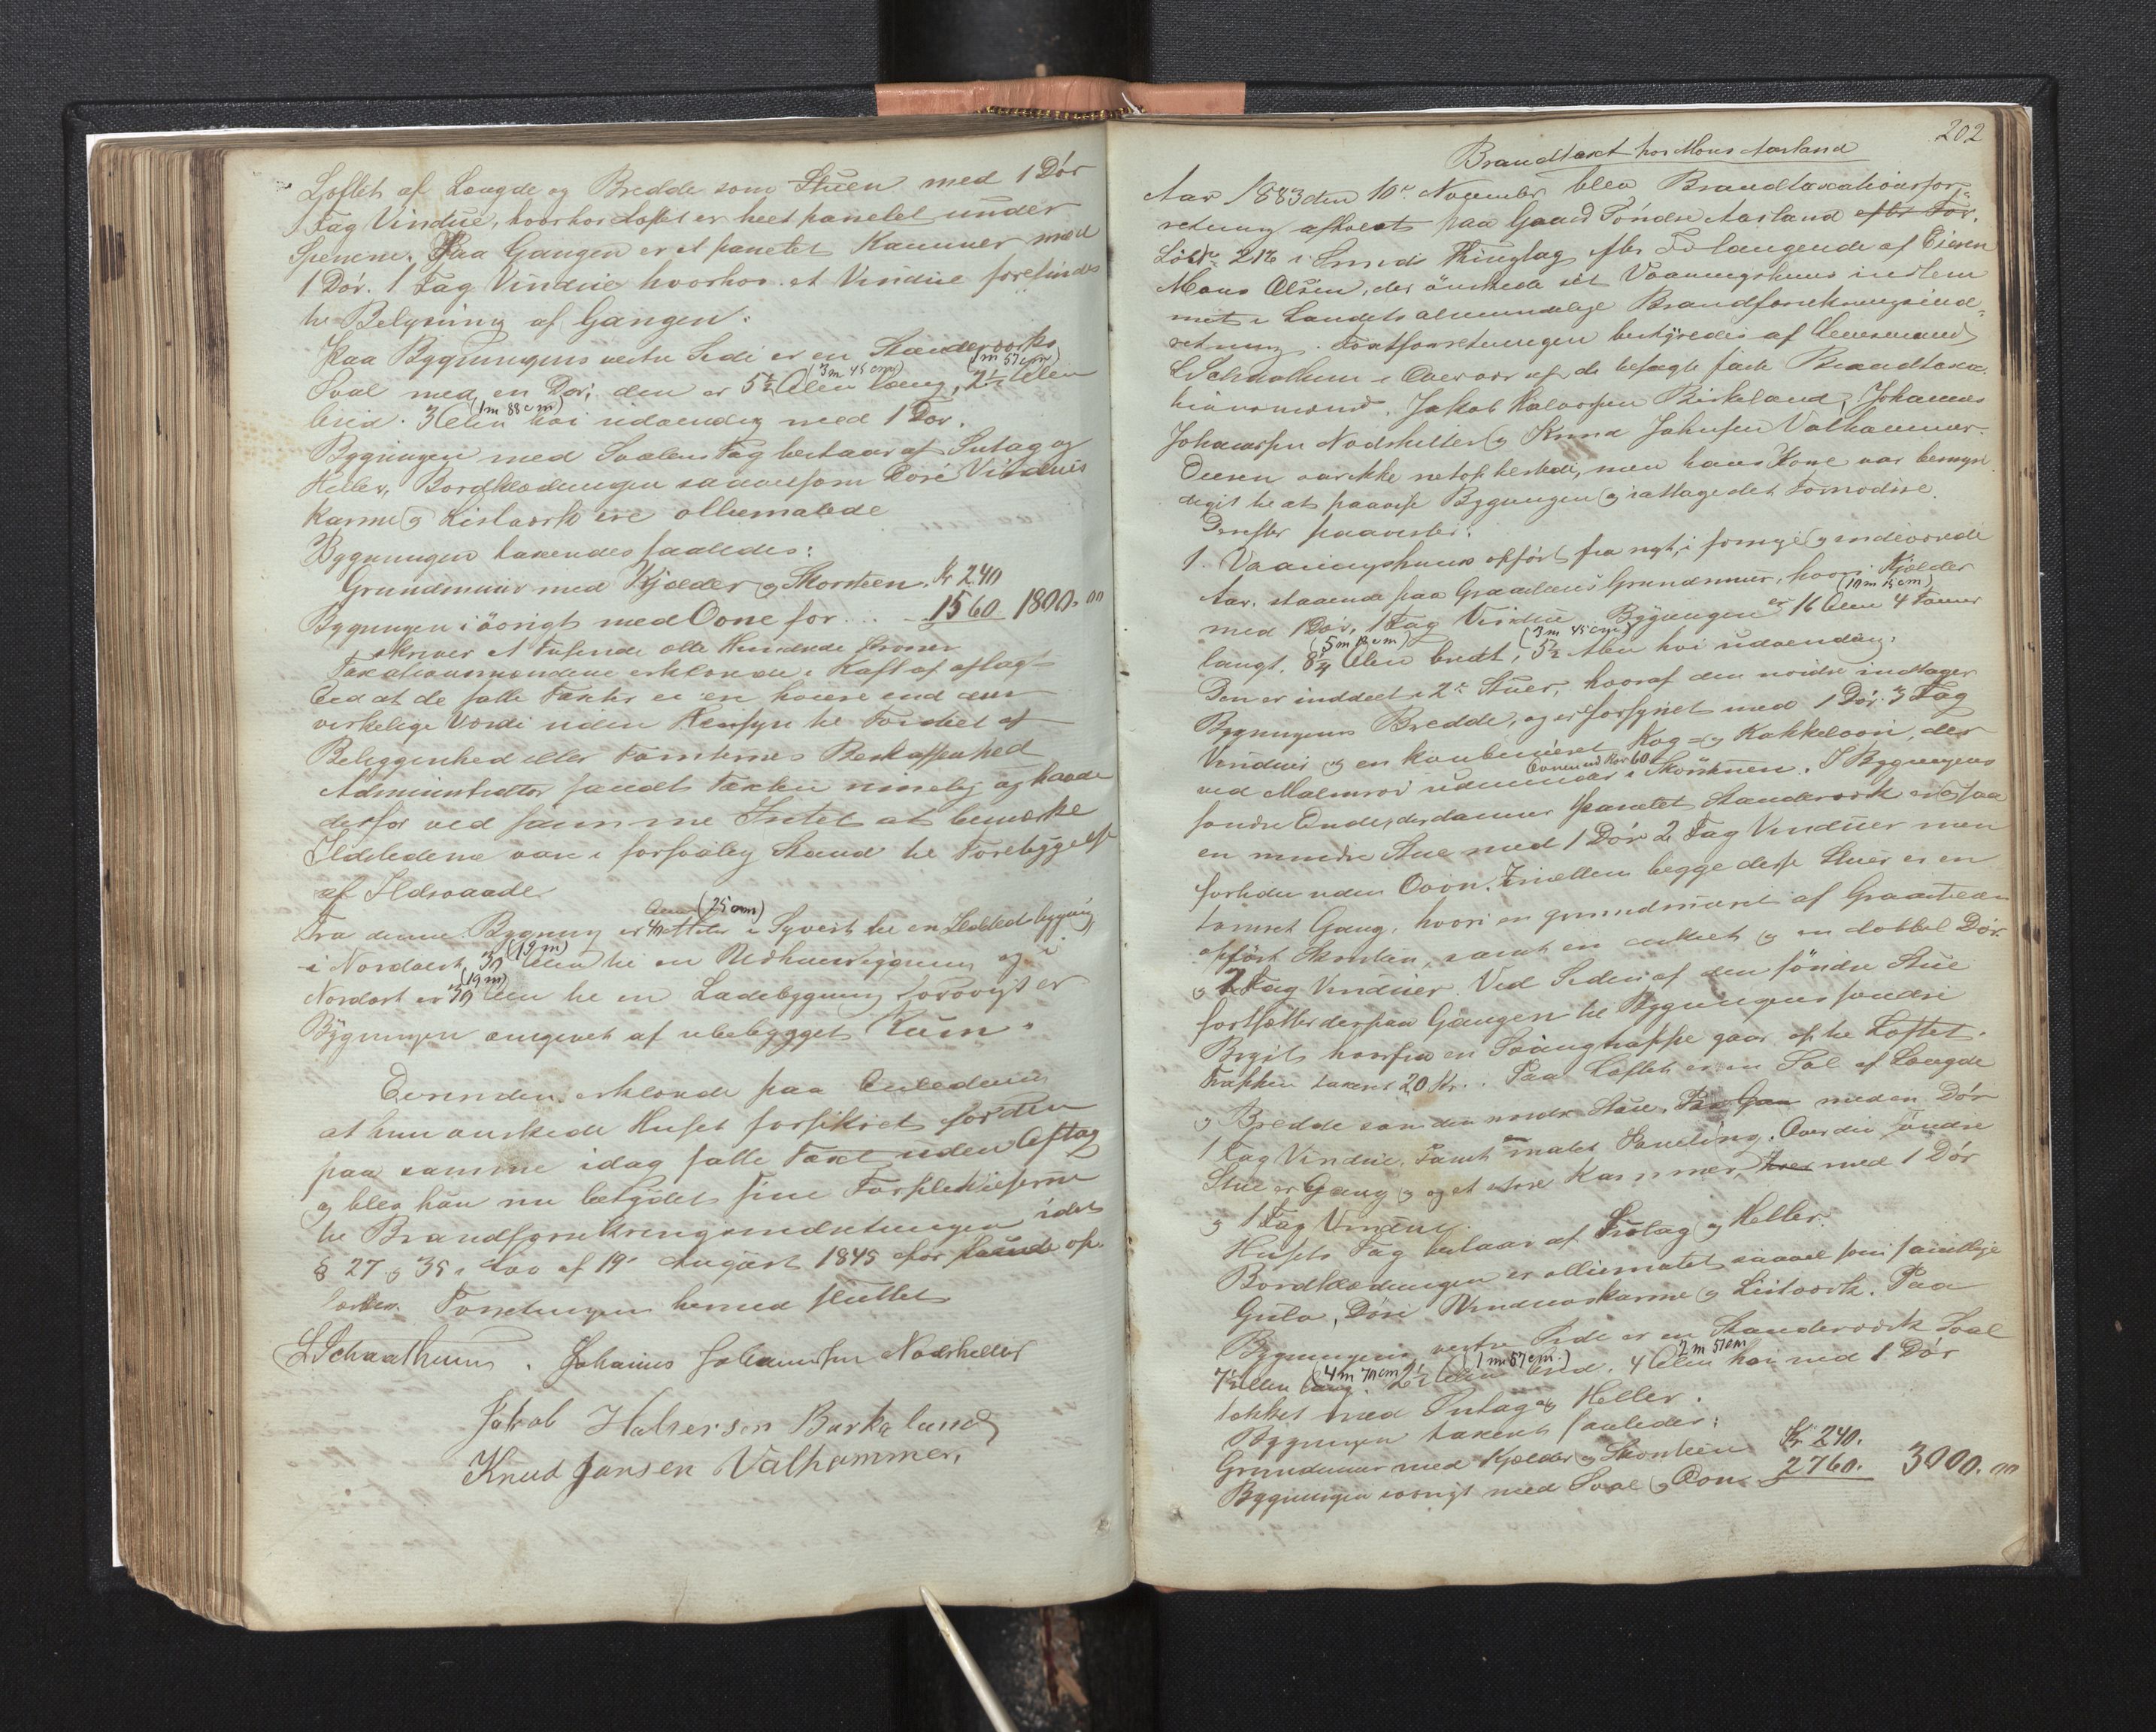 Loftet af Længde og Bredde som Stuen med 1 Dør
Fag Vindue, hvorhos Loftet er heel panelet under
Sperrene. Paa Gangen er et panelet Kammer med
1 Dør. 1 Fag Vindue hvorhos et Vindue forefindes
til Belysning af Gangen.
Paa Bygningens vestre Side er en Stænderverks
(3 m 45 cm) (1 m 57 cm)
Sval med en Dør, den er 5½ Alen lang, 2½ Alen
(1 m 88 cm)
bred. 3 Alen høi udvendig med 1 Dør.
Bygningen med Svalens Tag bestaar af Sutag og
Heller, Bordklædningen saavelsom Døre Vindues
Karme og Listverk ere oliemalede
Bygningen taxeredes saaledes:
Grundmuur med Kjelder og Skorsteen. Kr 240
Bygningen iøvrigt med Ovne for ... - 1560 1800.00
skriver et Tusinde otte Hundrede Kroner
Taxationsmændene erklærede i Kraft af aflagt
Eed at de satte Taxter ei ere høiere end den
virkelige Værdi uden Hensyn til Fordeel af
Beliggenhed eller Tomternes Beskaffenhed
Administrator fandt Taxten rimelig og havde
derfor ved samme Intet at bemærke
Ildstederne vare i forsvarlig Stand til Forebyggelse
af Ildsvaade
Alen (25 cm)
Fra denne Bygning er 40 i Sydvest til en Ildstedsbygning,
(19 m)
i Nordvest 30 Alen til en Udhuusbygning og i
(19 m)
Nordost er 30 Alen til en Ladebygning forøvrigt er
Bygningen omgivet af ubebygget Rum.
Eierinden erklærede paa Anledning
at hun ønskede Huset forsikret for den
paa samme idag satte Taxt uden Aftag
og blev han nu betydet sine Forpligtelserne
til Brandforsikringsindretningen idet
§ 27 og 35 i Lov af 19. August 1845 oplæstes.
Forretningen hermed sluttet
L Schaathuun. Johannes Johannesen Nødskelter
Jakob Halversen Birkeland
Knud Jansen Valhammer,
202
Brandtaxt hos Mons Aarland
Aar 1883 den 10de November blev Brandtaxationsfor-
retning afholdt paa Gaard Søndre Aarland efter For-
Løbe Nr 212 i ThingLag efter Forlangende af Eieren
Mons Olsen, der ønskede sit Vaaningshuus indlem-
met i Landets almindelige Brandforsikringsind-
retning. Taxtforretningen bestyredes af Lensmand
L Schaathuun i Overvær af de befaste faste Brandtaxa-
tionsmænd. Jakob Halvorsen Birkeland, Johannes
Johannesen Nødskelter og Knud Jahnsen Valhammer.
Eieren var ikke netop tilstede, men hans Kone var bemyn-
diget til at paavise Bygningen og iagttage det Fornødne.
Derefter paavistes:
1. Vaaningshuus opført fra nyt, i forrige og indeværende
Aar, staaende paa Graasteens Grundmuur, hvori Kjelder
(10 m 15 cm)
med 1 Dør, 1 Fag Vindue Bygningen er 16 Alen 4 Tommer
(5 m 18 cm) (3 m 45 cm)
langt. 8¼ Alen bredt, 5½ Alen høi udvendig.
Den er inddeelt i 2de Stuer, hvoraf den nordre indtager
Bygningens Bredde, og er forsynet med 1 Dør. 3 Fag
Vinduer og en kombineret Kog- og Kakkelovn, der
Ovnen vd Kr 60
ved Malmrør udmunder i Skorstenen. I Bygningens
søndre Ende, der danner panelet Stænderverk er ogsaa
en mindre Stue med 1 Dør 2 Fag Vinduer men
forhen uden Ovn. Imellem begge disse Stuer er en
tømret Gang, hvori en grundmuret af Graasteen
opført Skorsten, samt en enkelt og en dobbel Dør.
og 2 Fag Vinduer. Ved Siden af den søndre Stue
fortsætter derpaa Gangen til Bygningens søndre
hvorfra en Svingtrappe gaar op til Loftet.
Trappen taxeret 20 Kr. Paa Loftet er en Sal af Længde
og Bredde som den nordre Stue. Paa Gan med en Dør
1 Fag Vindue, samt malet Paneling. Over den søndre
Stue er Gang og et store Kammer, hver med 1 Dør
og 1 Fag Vindue.
Husets Tag bestaar af Sutag og Heller.
Bordklædningen er oliemalet saavel som samtlige
Gulv, Døre Vindueskarme og Listverk. Paa
Bygningens vestre Side er en Stænderværk Sval
(4 m 70 cm) (1 m 57 cm.) 2 m 51 cm
7½ Alen lang. 2½ Alen bred. 4 Alen høi med 1 Dør
tækket med Sutag og Heller.
Bygningen taxeret saaledes:
Grundmuur med Kjelder og Skorsteen Kr 240.
Bygningen iøvrigt med Sval og Ovn 2760. 3000.00